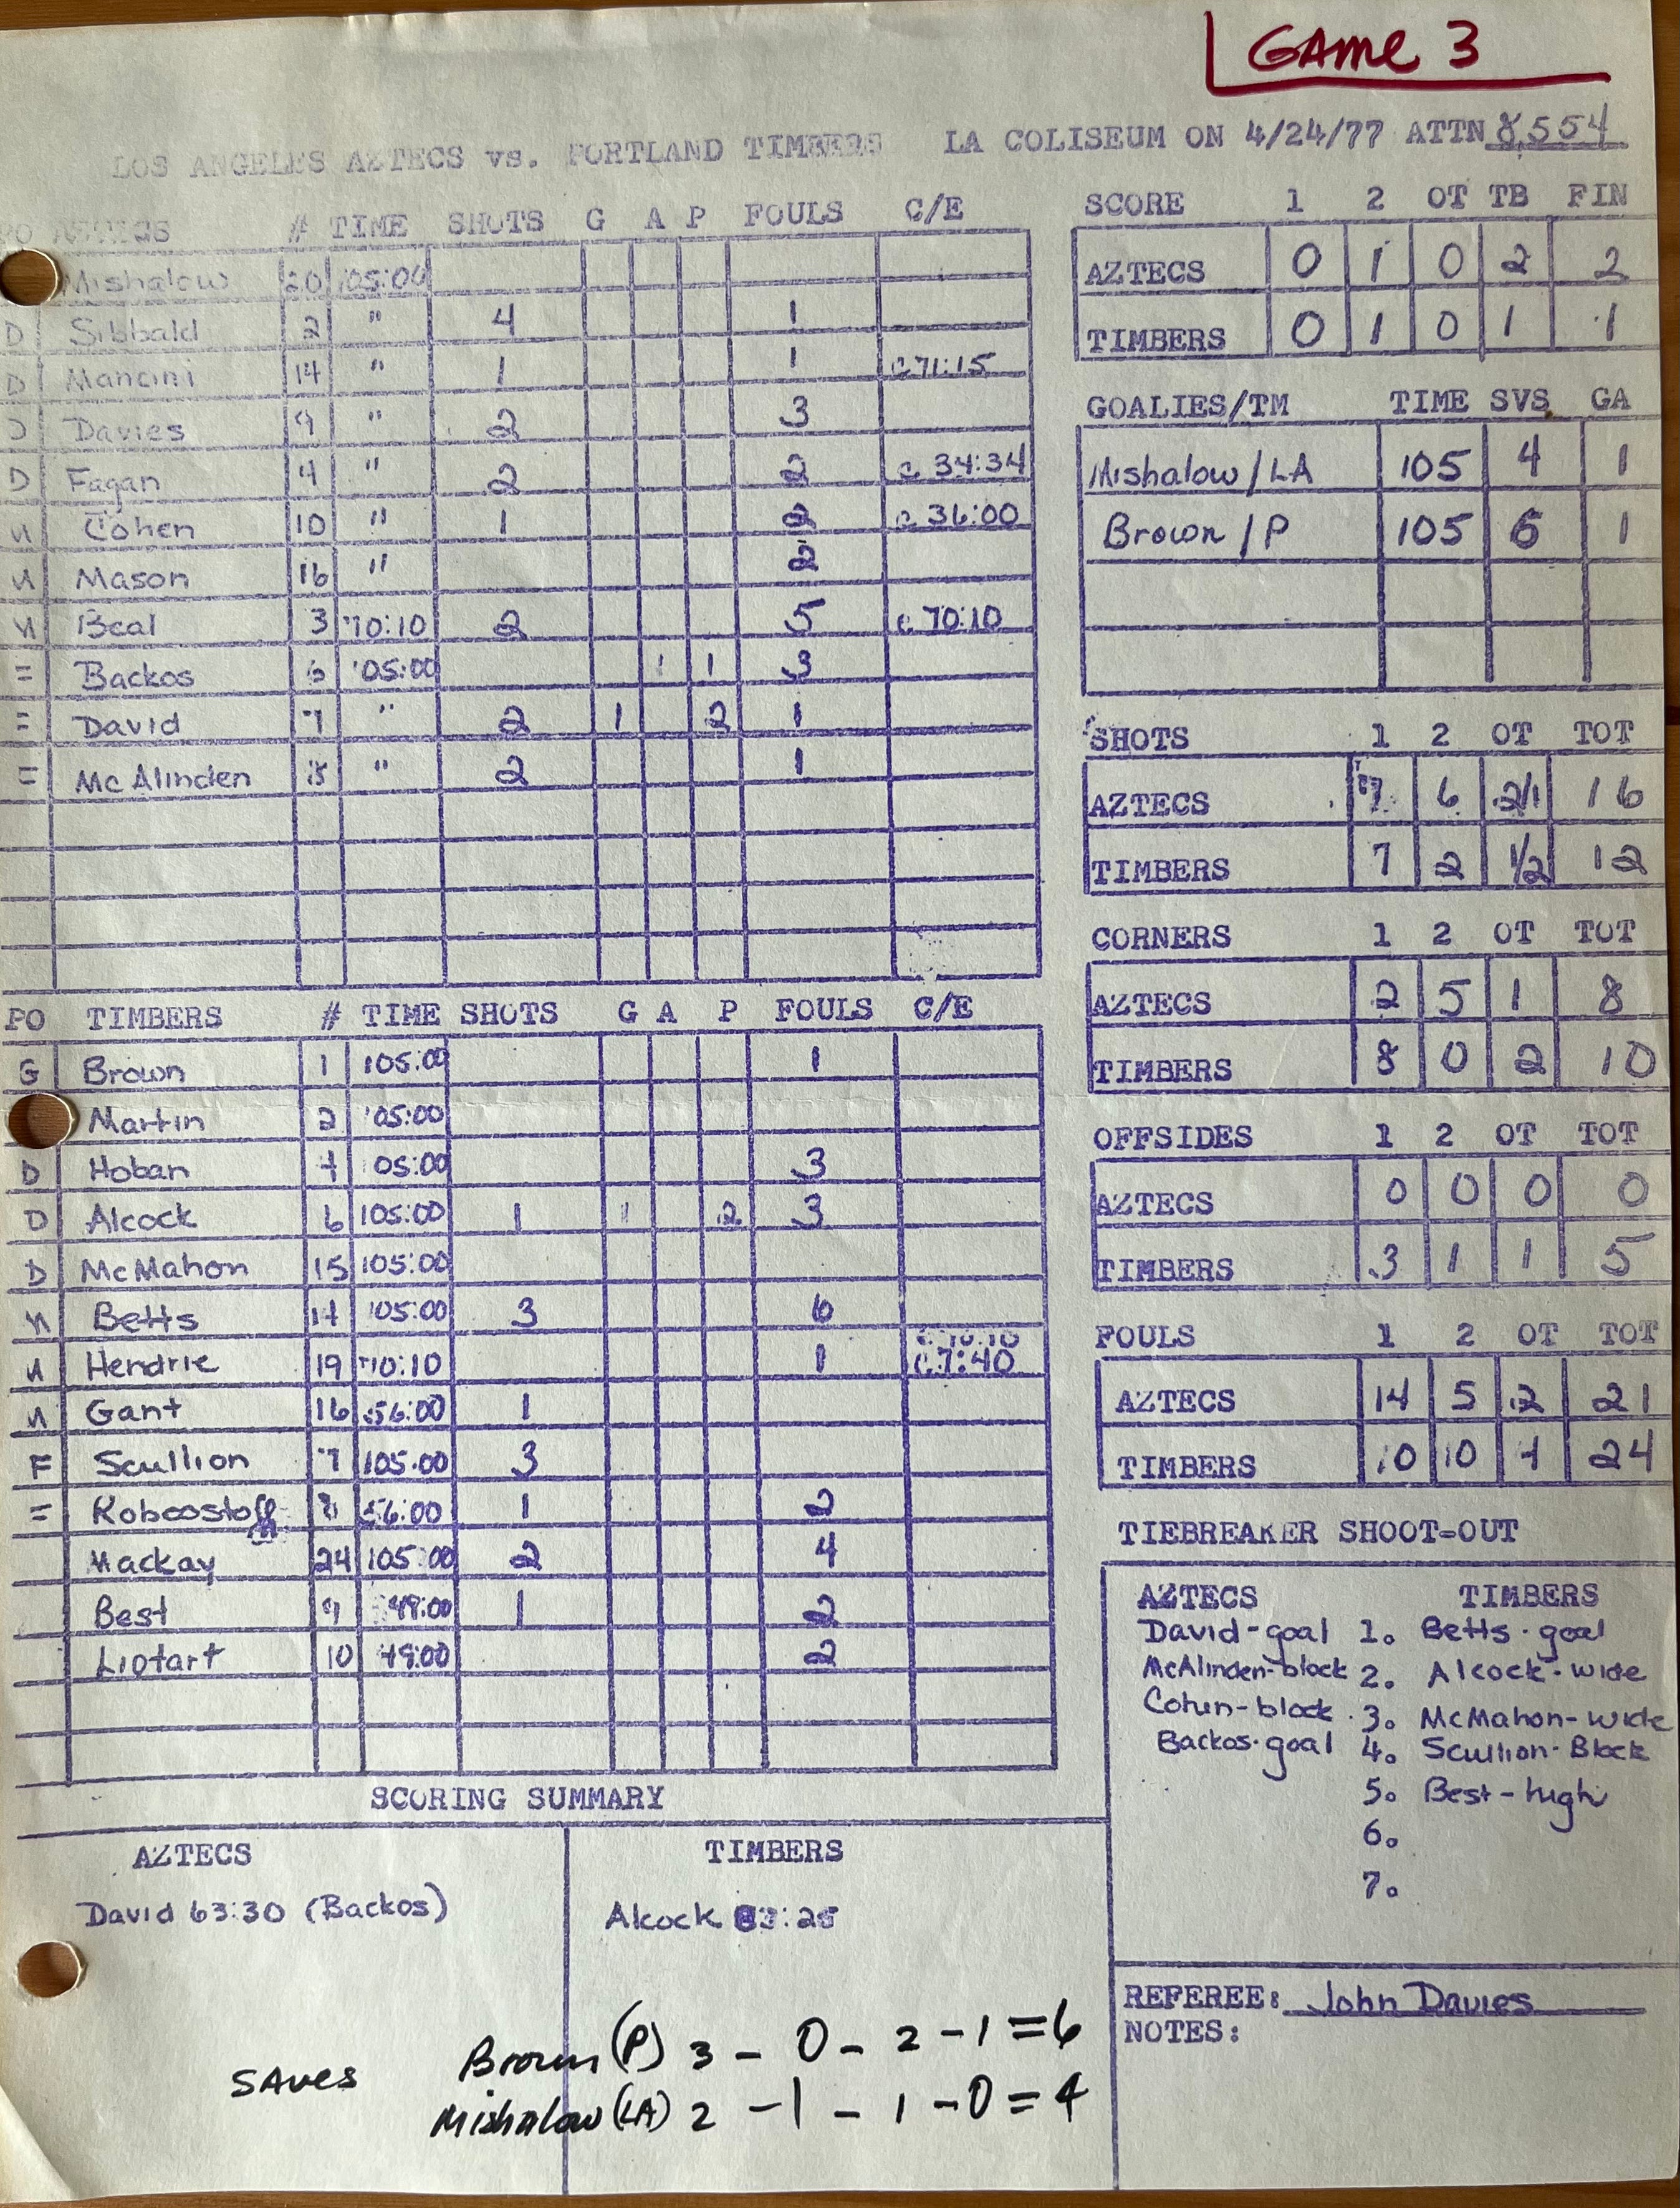 GAME 3
LOS ANGELES AZTECS vs. PORTLAND TIMBERS LA COLISEUM ON 4/24/77 ATTN 8,554
PO AZTECS # TIME SHOTS G A P FOULS C/E
Mishalow 20 105:00
D Sibbald 2 " 4 1
D Mancini 14 " 1 1 c 71:15
D Davies 9 " 2 3
D Fagan 4 " 2 2 c 34:34
M Cohen 10 " 1 2 c 36:00
M Mason 16 " 2
M Beal 3 70:10 2 5 c 70:10
F Backos 6 105:00 1 1 3
F David 7 " 2 1 2 1
F McAlinden 8 " 2 1
PO TIMBERS # TIME SHOTS G A P FOULS C/E
G Brown 1 105:00 1
Martin 2 105:00
D Hoban 4 105:00 3
D Alcock 6 105:00 1 1 2 3
D McMahon 15 105:00
M Betts 14 105:00 3 6
M Hendrie 19 70:10 1 c 70:10 c 7:40
M Gant 16 56:00 1
F Scullion 7 105:00 3
F Roboostoff 8 56:00 1 2
Mackay 24 105:00 2 4
Best 9 49:00 1 2
Liotart 10 49:00 2
SCORING SUMMARY
AZTECS TIMBERS
David 63:30 (Backos) Alcock
SAVES Brown (P) 3 - 0 - 2 - 1 = 6
Mishalow (LA) 2 - 1 - 1 - 0 = 4
SCORE 1 2 OT TB FIN
AZTECS 0 1 0 2 2
TIMBERS 0 1 0 1 1
GOALIES/TM TIME SVS. GA
Mishalow/LA 105 4 1
Brown/P 105 6 1
SHOTS 1 2 OT TOT
AZTECS 7 6 2/1 16
TIMBERS 7 2 1/2 12
CORNERS 1 2 OT TOT
AZTECS 2 5 1 8
TIMBERS 8 0 2 10
OFFSIDES 1 2 OT TOT
AZTECS 0 0 0 0
TIMBERS 3 1 1 5
FOULS 1 2 OT TOT
AZTECS 14 5 2 21
TIMBERS 10 10 4 24
TIEBREAKER SHOOT-OUT
AZTECS TIMBERS
David-goal 1. Betts-goal
McAlinden-block 2. Alcock-wide
Cohen-block 3. McMahon-wide
Backos-goal 4. Scullion-Block
5. Best-high
6.
7.
REFEREE: John Davies
NOTES: